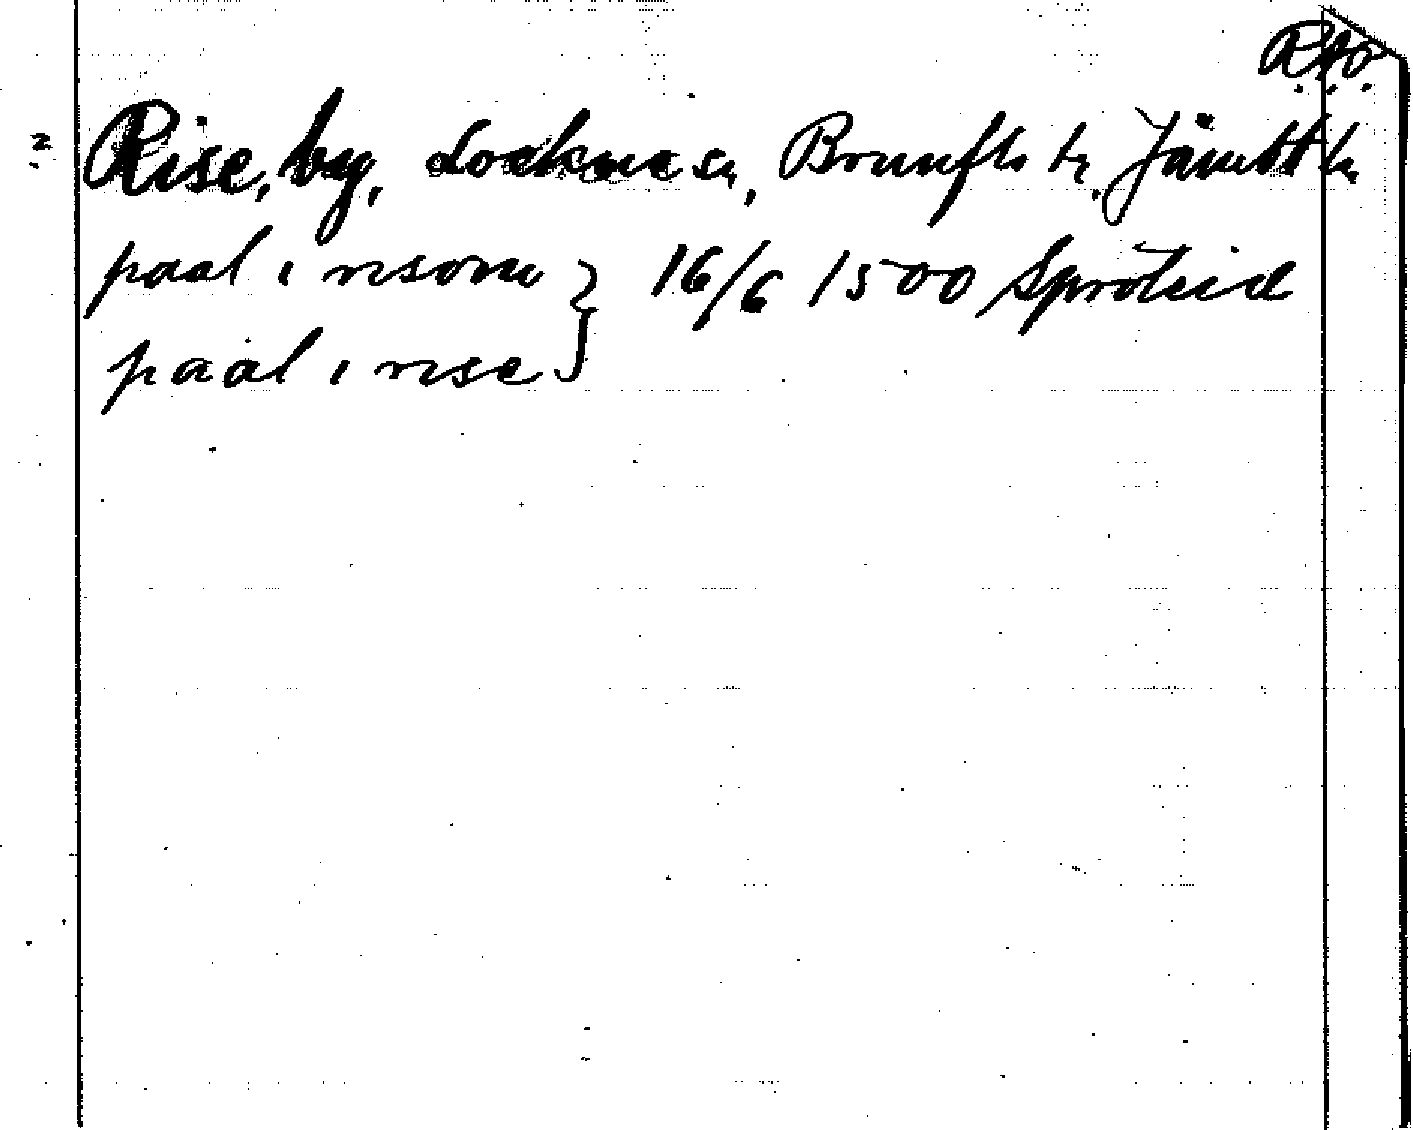 Rise, by, Lockne sn, Brunflo tg, Jämtl ln
paal i risom } 16/6 1500 Språkid
paal i rise